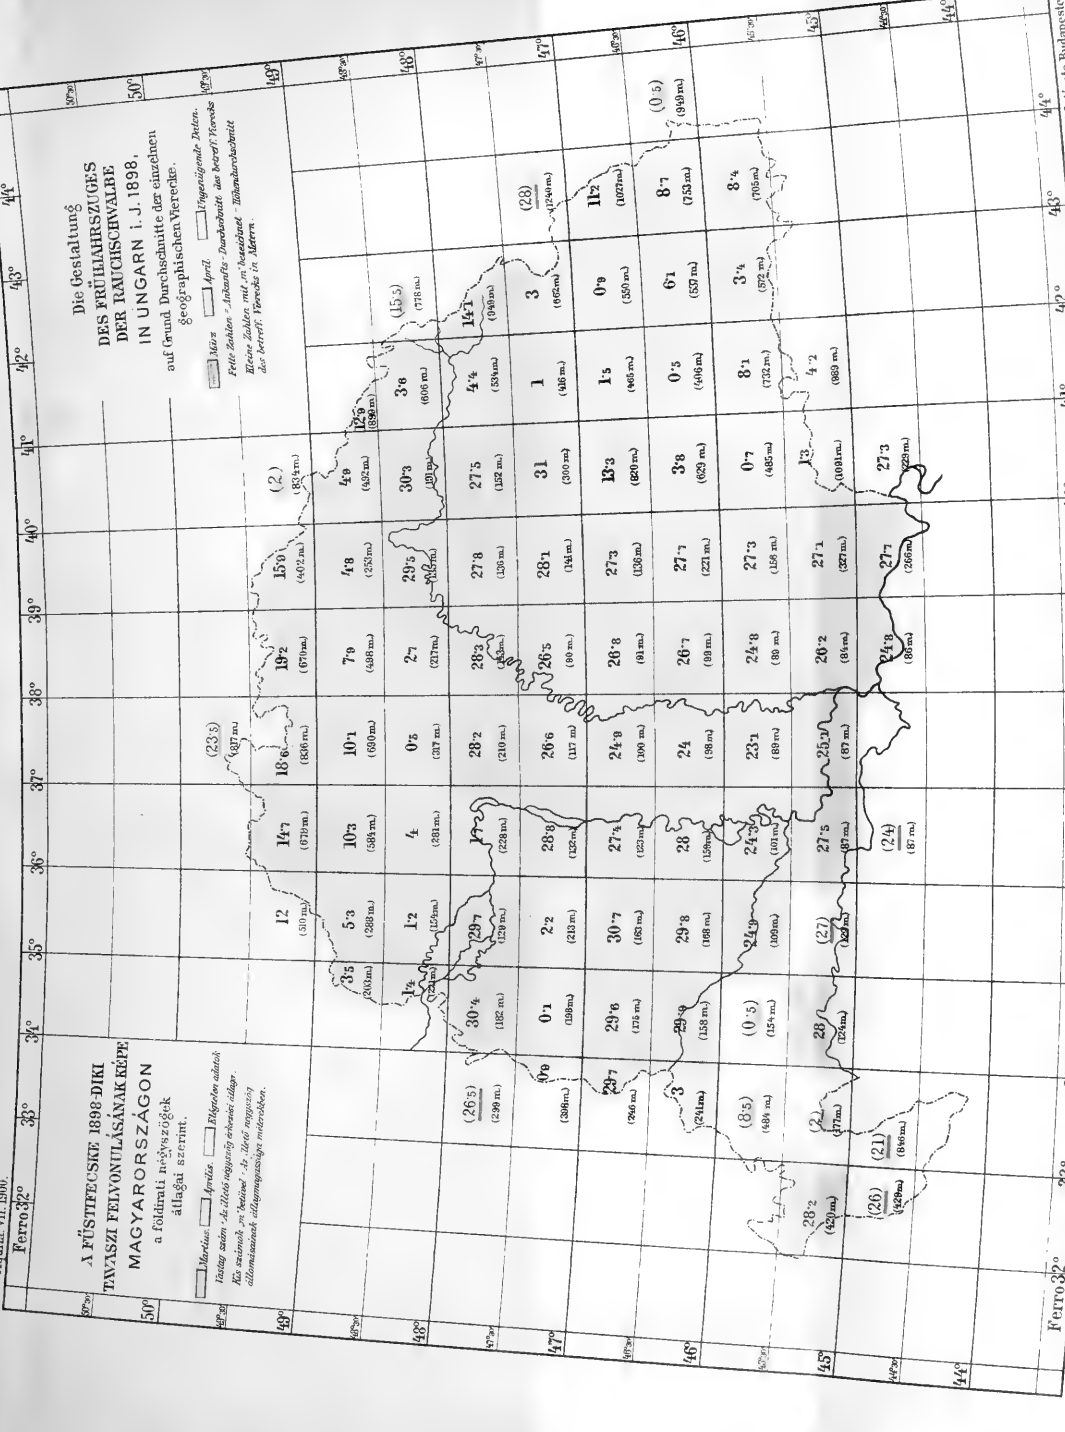 Ferro 32°
33°
34°
35°
36°
37°
38°
39°
40°
41°
42°
43°
44°
A FÜSTIFECSKE 1898-DIKI
TAVASZI FELVONULÁSÁNAK KÉPE
MAGYARORSZÁGON
a földirati négyszögek
átlagai szerint.
Martius. Április. Elégtelen adatok
Vastag szám = Az illető négyszög érkezési átlaga.
Kis számok „m" betűvel = Az illető négyszög
állomásainak átlagmagassága méterekben.
Die Gestaltung
DES FRÜHJAHRSZUGES
DER RAUCHSCHWALBE
IN UNGARN i. J. 1898,
auf Grund Durchschnitte der einzelnen
geographischen Vierecke.
März April Ungenügende Daten.
Fette Zahlen = Ankunfts-Durchschnitt des betreff. Vierecks
Kleine Zahlen mit „m" bezeichnet = Höhendurchschnitt
des betreff. Vierecks in Metern.
50°30'
50°
49°30'
49°
48°30'
48°
47°30'
47°
46°30'
46°
45°30'
45°
44°30'
44°
(23·5)
(837 m.)
12
(510 m.)
14·7
(679 m.)
18·6
(836 m.)
19·2
(670 m.)
15·9
(402 m.)
(2)
(834 m.)
3·5
(203 m.)
5·3
(288 m.)
10·3
(584 m.)
10·1
(690 m.)
7·9
(498 m.)
4·8
(253 m.)
4·9
(492 m.)
12·9
(899 m.)
1·4
1·2
(154 m.)
4
(281 m.)
0·5
(317 m.)
2·7
(217 m.)
29·5
30·3
(191 m.)
3·8
(606 m.)
(15·5)
(778 m.)
(26·5)
(299 m.)
30·4
(182 m.)
29·7
(129 m.)
(228 m.)
28·2
(210 m.)
28·3
27·8
(136 m.)
27·5
(152 m.)
4·4
(534 m.)
14·1
(949 m.)
0·9
(398 m.)
0·1
(198 m.)
2·2
(213 m.)
28·8
(132 m.)
26·6
(117 m.)
26·5
(90 m.)
28·1
(141 m.)
31
(300 m.)
1
(416 m.)
3
(662 m.)
(28)
(1240 m.)
29·7
(246 m.)
29·6
(175 m.)
30·7
(163 m.)
27·4
(123 m.)
24·9
(100 m.)
26·8
(91 m.)
27·3
(136 m.)
13·3
(820 m.)
1·5
(465 m.)
0·9
(550 m.)
11·2
(1027 m.)
3
(241 m.)
(158 m.)
29·8
(168 m.)
28
(159 m.)
24
(98 m.)
26·7
(99 m.)
27·7
(221 m.)
3·8
(629 m.)
0·5
(406 m.)
6·1
(557 m.)
8·7
(753 m.)
(0·5)
(949 m.)
(8·5)
(484 m.)
(0·5)
(154 m.)
24·9
(109 m.)
24·3
(101 m.)
23·1
(89 m.)
24·8
(89 m.)
27·3
(156 m.)
0·7
(485 m.)
8·1
(732 m.)
3·4
(572 m.)
8·4
(705 m.)
28·2
(420 m.)
(2)
(177 m.)
28
(124 m.)
(27)
(129 m.)
27·5
(87 m.)
25·1
(87 m.)
26·2
(84 m.)
27·1
(327 m.)
1·3
(1091 m.)
4·2
(989 m.)
(26)
(429 m.)
(21)
(846 m.)
(24)
(87 m.)
24·8
(86 m.)
27·7
(266 m.)
27·3
(229 m.)
50°30'
50°
49°30'
49°
48°30'
48°
47°30'
47°
46°30'
46°
45°30'
45°
44°30'
44°
Ferro 32°
42°
43°
44°